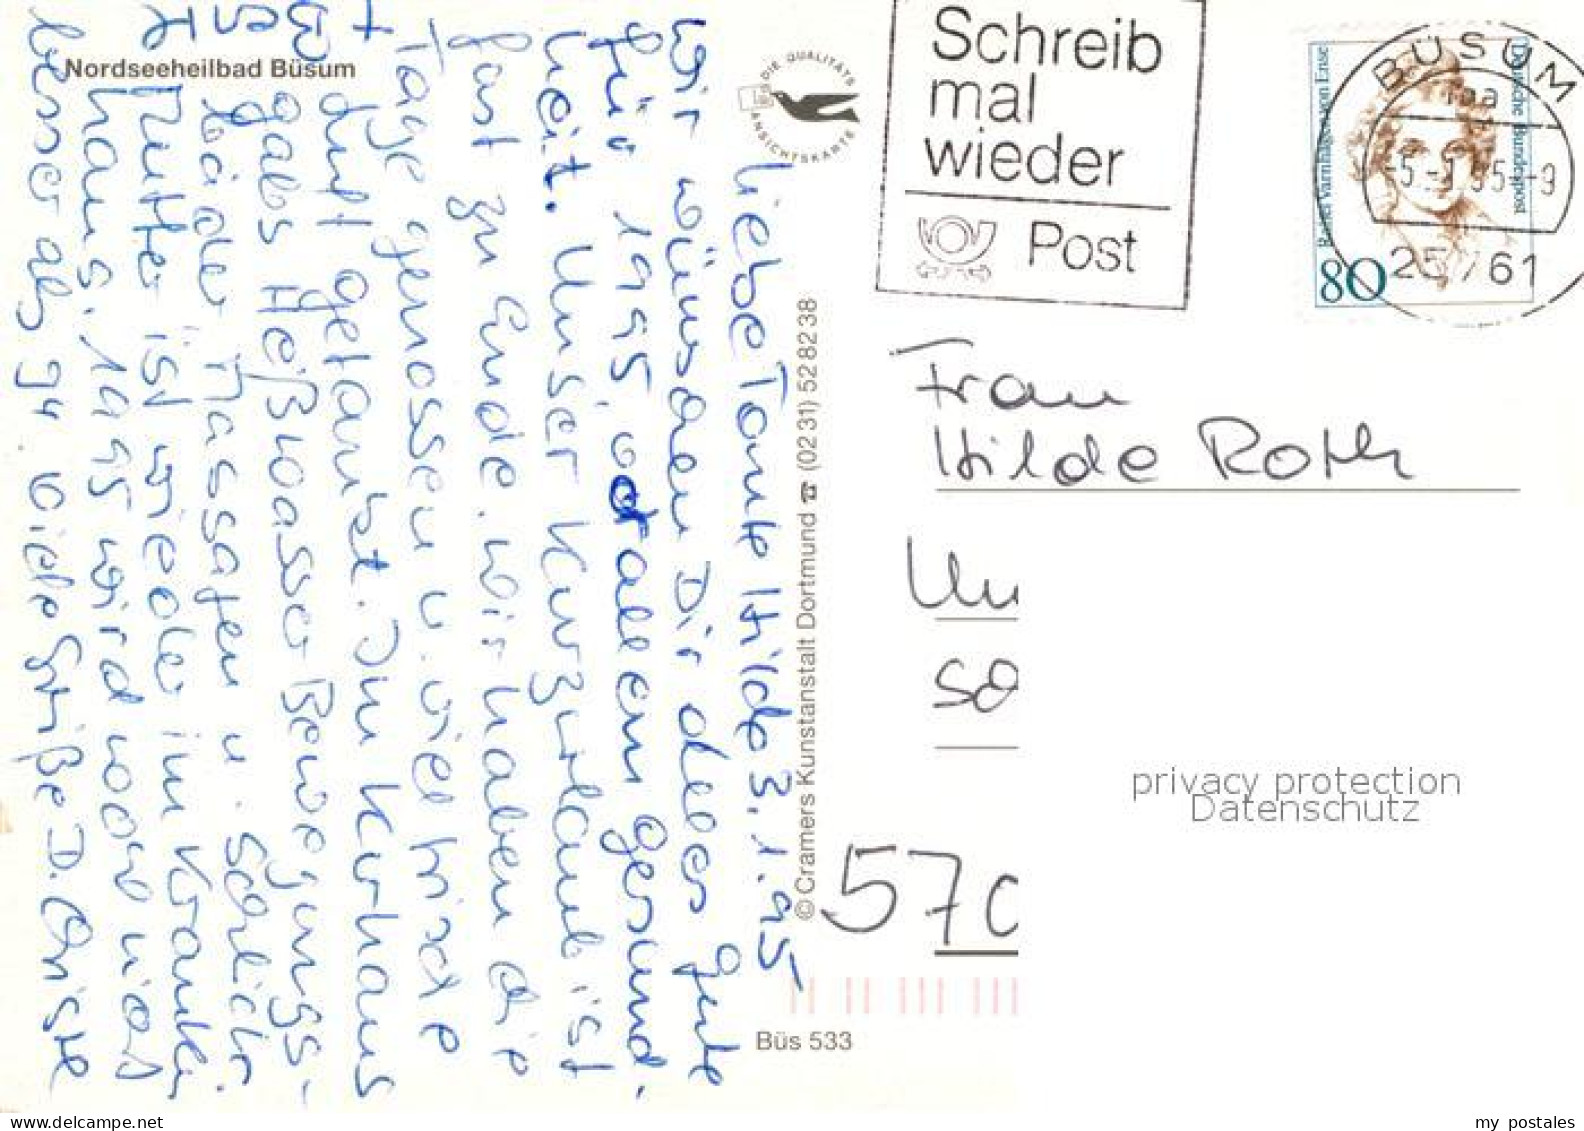 Nordseeheilbad Büsum
DIE QUALITÄTS
ANSICHTSKARTE
Schreib
mal
wieder
Post
BÜSUM
-5.-1.95--9
25761
Rahel Varnhagen von Ense
Deutsche Bundespost
80
Liebe Tante Hilde 3.1.95
Wir wünschen Dir alles Gute
für 1995, vor allem Gesund-
heit. Unser Kurzurlaub ist
fast zu Ende. Wir haben die
Tage genossen u. viel frische
Luft getankt. Im Kurhaus
gabs Heißwasser Bewegungs-
bäder Massagen u.
Mutter ist wieder im Kranken
haus. 1995 wird
besser als 94. Viele Grüße D. Christe
© Cramers Kunstanstalt Dortmund ☎ (0231) 528238
Büs 533
Frau
Hilde Roth
Un
So
57
privacy protection
Datenschutz
my postales